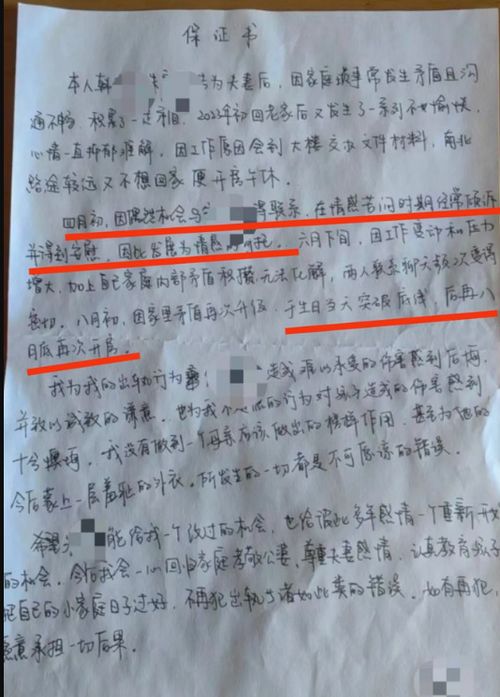 保证书
本人韩 朱 结为夫妻后，因家庭琐事常发生矛盾且沟
通不畅，积累了一定矛盾。2023年初回老家后又发生了一系列不愉快，
心情一直抑郁难解，因工作原因会到大楼交办文件材料，南北
路途较远又不想回家便开房午休。
四月初，因偶然机会与 得联系，在情感苦闷时期经常倾诉
并得到安慰，因此发展为情感 。六月下旬，因工作变动和压力
增大，加上自己家庭内部矛盾积攒无法化解，两人联系聊天频次变得
密切。八月初，因家里矛盾再次升级，于生日当天突破底线，后再八
月底再次开房。
我为我的出轨行为 造成难以承受的伤害感到后悔，
并致以诚挚的道歉，也为我个人的行为对孩子造成的伤害感到
十分懊悔，我没有做到一个母亲应该做出的榜样作用，甚至为他的
今后蒙上一层羞耻的外衣。所发生的一切都是不可原谅的错误。
希望 能给我一个改过的机会，也给彼此多年感情一个重新开
的机会。今后我会一心回归家庭孝敬公婆，尊重夫妻感情，认真教育孩子
把自己的小家庭日子过好，不再犯出轨诸如此类的错误。如有再犯，
愿意承担一切后果。